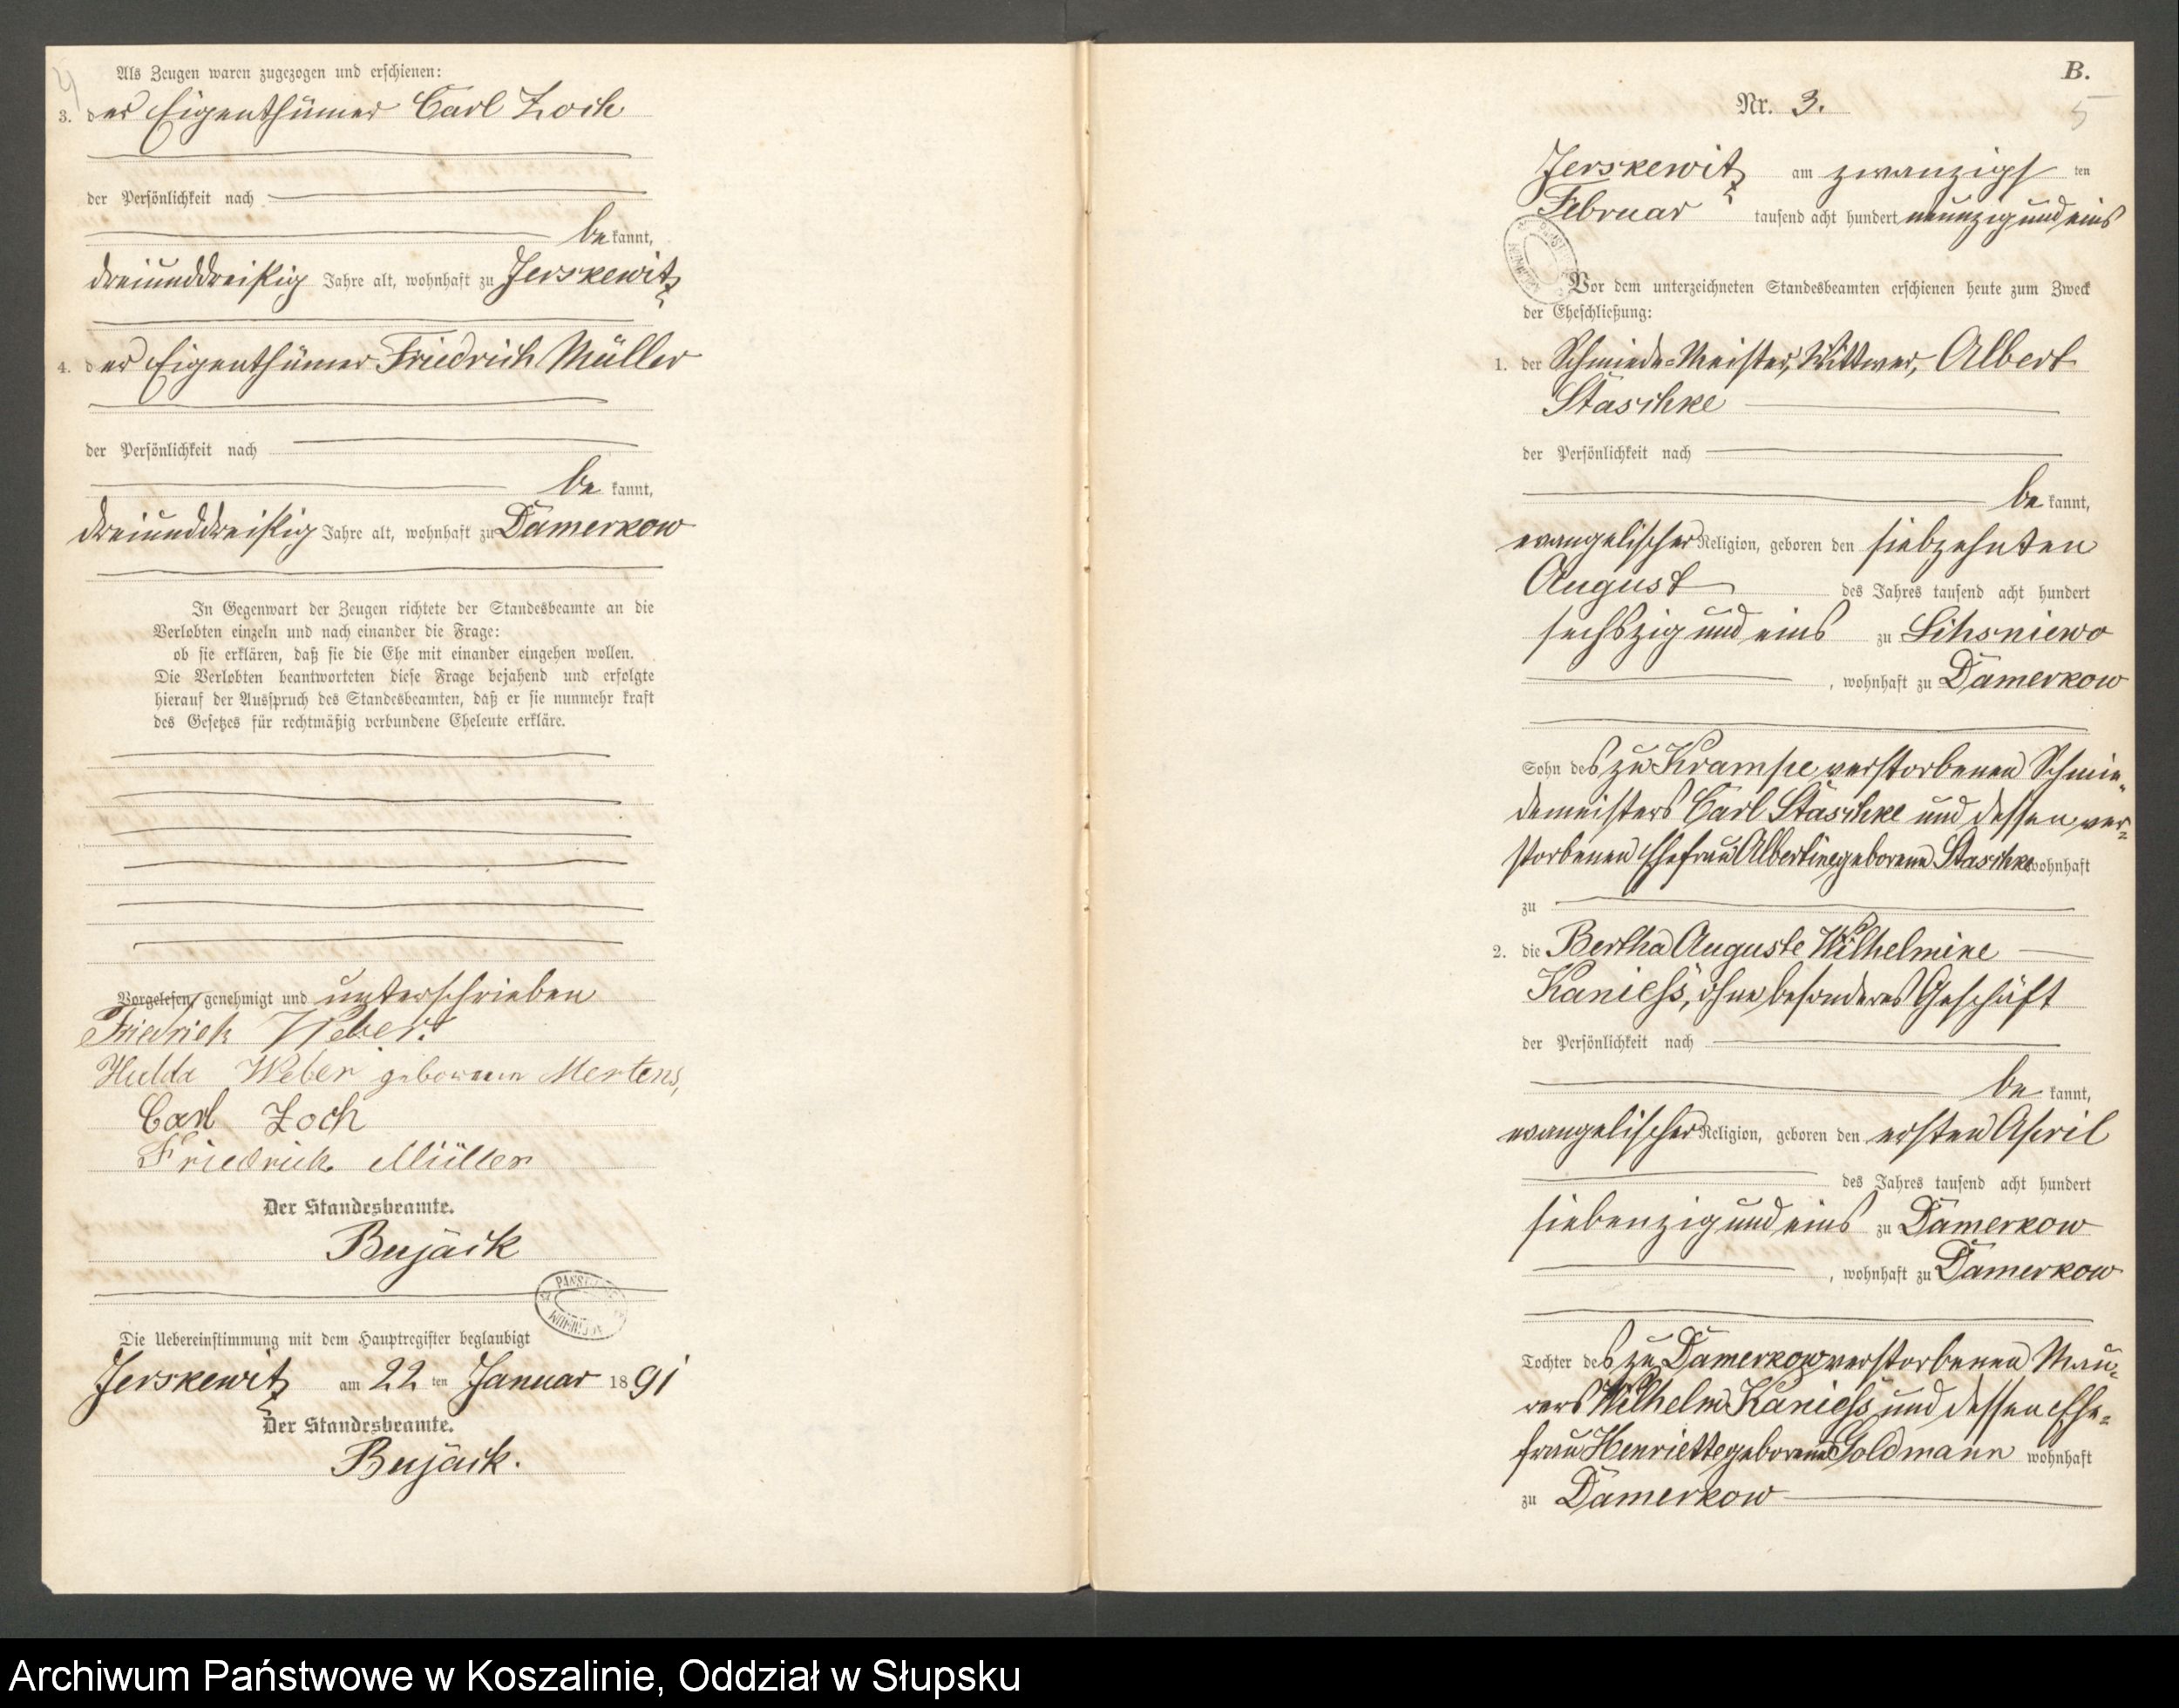 4
Als Zeugen waren zugezogen und erschienen:
3. der Eigenthümer Carl Zoch
der Persönlichkeit nach
be kannt,
dreiunddreißig Jahre alt, wohnhaft zu Jerskewitz
4. der Eigenthümer Friedrich Müller
der Persönlichkeit nach
be kannt,
dreiunddreißig Jahre alt, wohnhaft zu Damerkow
In Gegenwart der Zeugen richtete der Standesbeamte an die
Verlobten einzeln und nach einander die Frage:
ob sie erklären, daß sie die Ehe mit einander eingehen wollen.
Die Verlobten beantworteten diese Frage bejahend und erfolgte
hierauf der Ausspruch des Standesbeamten, daß er sie nunmehr kraft
des Gesetzes für rechtmäßig verbundene Eheleute erkläre.
Vorgelesen, genehmigt und unterschrieben
Friedrich Weber.
Hulda Weber geborenen Mertens,
Carl Zoch
Friedrich Müller
Der Standesbeamte.
Bujack
Die Uebereinstimmung mit dem Hauptregister beglaubigt
Jerskewitz am 22 ten Januar 1891
Der Standesbeamte.
Bujack.
B.
5
Nr. 3.
Jerskewitz am zwanzigsten
Februar tausend acht hundert neunzig und eins
Vor dem unterzeichneten Standesbeamten erschienen heute zum Zweck
der Eheschließung:
1. der Schmiede-Meister, Wittwer, Albert
Staschke
der Persönlichkeit nach
be kannt,
evangelischer Religion, geboren den siebzehnten
August des Jahres tausend acht hundert
sechszig und eins zu Lihsniewo
, wohnhaft zu Damerkow
Sohn des zu Krampe verstorbenen Schmie-
demeisters Carl Staschke und dessen ver-
storbenen Ehefrau Albertine geborene Staschke wohnhaft
zu
2. die Bertha Auguste Wilhelmine
Kaniess, ohne besonderes Geschäft
der Persönlichkeit nach
be kannt,
evangelischer Religion, geboren den ersten April
des Jahres tausend acht hundert
siebenzig und eins zu Damerkow
, wohnhaft zu Damerkow
Tochter des zu Damerkow verstorbenen Mau-
rers Wilhelm Kaniess und dessen Ehe-
frau Henriette geborene Goldmann wohnhaft
zu Damerkow
Archiwum Państwowe w Koszalinie, Oddział w Słupsku